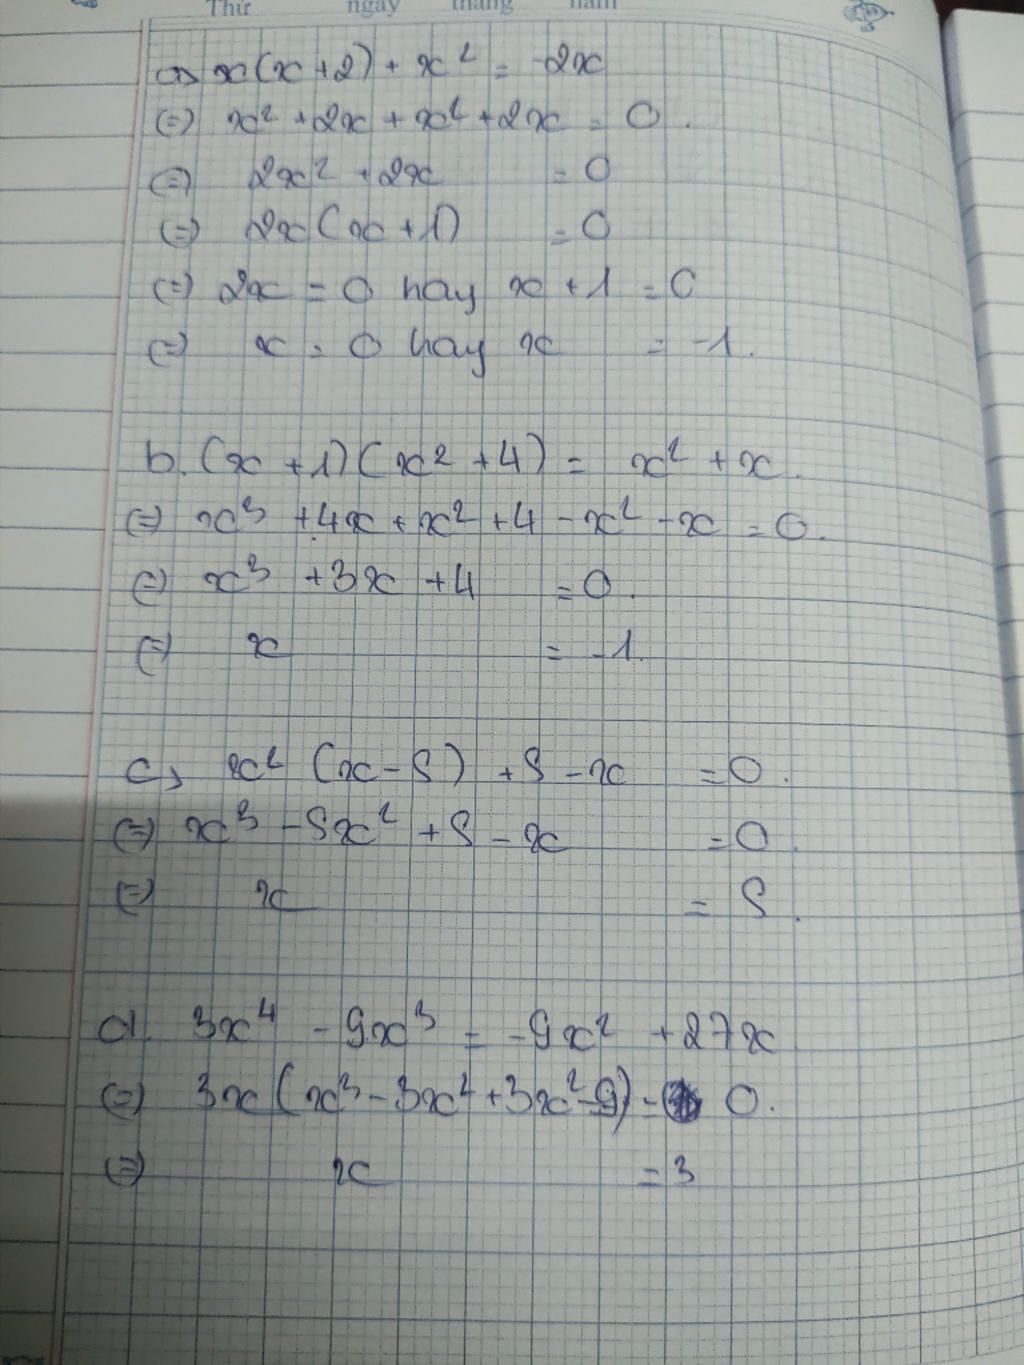 Thứ ngày tháng năm
a, x(x+2) + x² = -2x
(=) x² + 2x + x² + 2x = 0.
(=) 2x² + 2x = 0
(=) 2x(x+1) = 0
(=) 2x = 0 hay x + 1 = 0
(=) x = 0 hay x = -1.
b. (x+1)(x²+4) = x² + x.
(=) x³ + 4x + x² + 4 - x² - x = 0.
(=) x³ + 3x + 4 = 0.
(=) x = -1.
c, x² (x-5) + 5 - x = 0.
(=) x³ - 5x² + 5 - x = 0.
(=) x = 5.
d. 3x⁴ - 9x³ = -9x² + 27x
(=) 3x(x³ - 3x² + 3x² - 9) = 0.
(=) x = 3